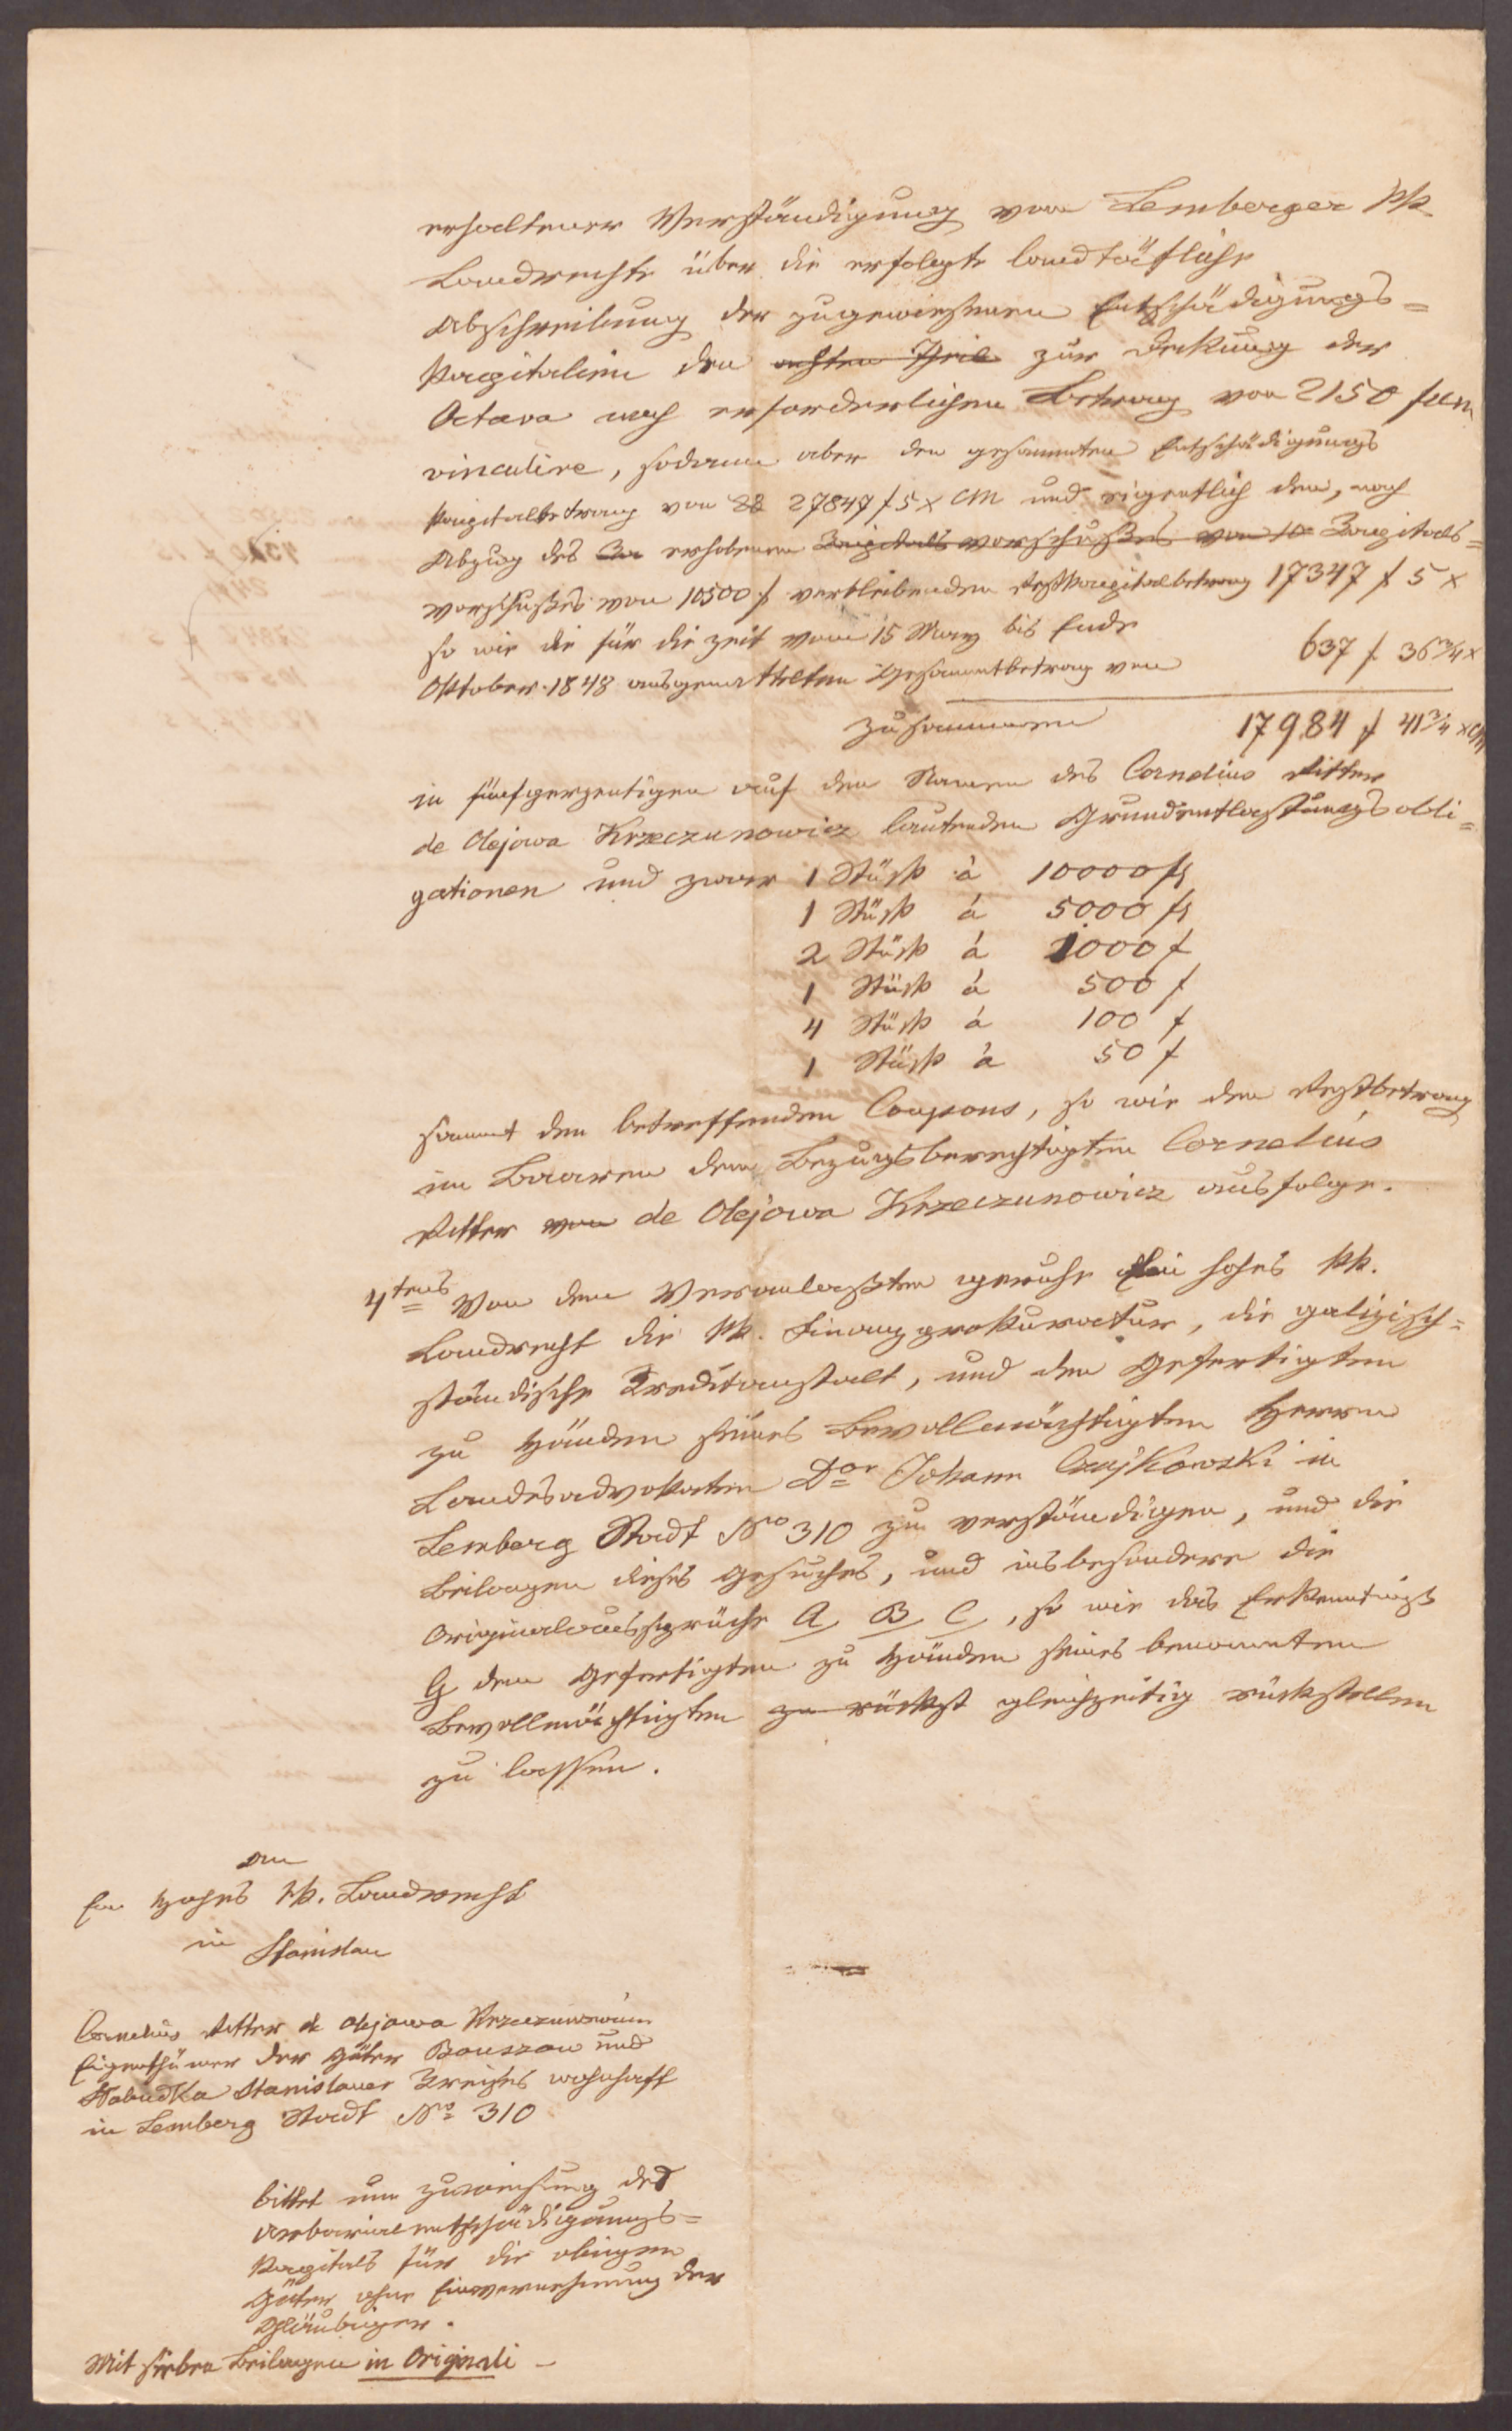 erhaltener Verständigung vom Lemberger kk.
Landrechte über die erfolgte landtäfliche
Abschreibung der zugewiesenen Entschädigungs=
Kapitalien den achten Theil zur Dekung der
Octava noch erforderlichen Betrag von 2150 f
vinculire, sodann aber den gesammten Entschädigungs
Kapitalbetrag von 28 27847 f 5 x CM und eigentlich den, nach
Abzug des Ka erhobenen Kapitals vorschußes von 10 Kapitals=
vorschußes von 10500 f verbleibenden Restkapitalbetrag 17347 f 5 x
so wie die für die Zeit vom 15 May bis Ende
Oktober 1848 ausgemittelten Gesammtbetrag von 637 f 36 3/4 x
Zusammen 17984 f 41 3/4 x CM
in fünfperzentigen auf den Namen des Cornelius Ritter
de Olejowa Krzeczunowicz lautenden Grundentlastungsobli=
gationen und zwar 1 Stück à 10000 fl
1 Stück á 5000 fl
2 Stück á 1000 f
1 Stück á 500 f
4 Stück á 100 f
1 Stück à 50 f
sammt den betreffenden Coupons, so wie den Restbetrag
im Baaren dem Bezugsberechtigten Cornelius
Ritter von de Olejowa Krzeczunowicz ausfolge.
4tens Von dem Veranlaßten geruhe Ein hohes kk.
Landrecht die kk. Finanzprokuratur, die galizisch=
ständische Kreditanstalt, und den Gefertigten
zu Händen seines Bevollmächtigten Herrn
Landesadvokaten Dor Johann Czajkowski in
Lemberg Stadt No 310 zu verständigen, und die
Beilagen dieses Gesuches, und insbesondere die
Originalaussprüche A, B, C, so wie das Erkenntniß
G dem Gefertigten zu Händen seines benannten
Bevollmächtigten zu rückst gleichzeitig rückstellen
zu lassen.
An
Ein hohes kk. Landrecht
in Stanislau
Cornelius Ritter de Olejowa Krzeczunowicz
Eigenthümer der Güter Bouszow und
Slobudka Stanislauer Kreises wohnhaft
in Lemberg Stadt No 310
bittet um Zuweisung des
Urbarialentschädigungs=
Kapitals für die obigen
Güter ohne Einvernehmung der
Gläubiger.
Mit sieben Beilagen in Originali –